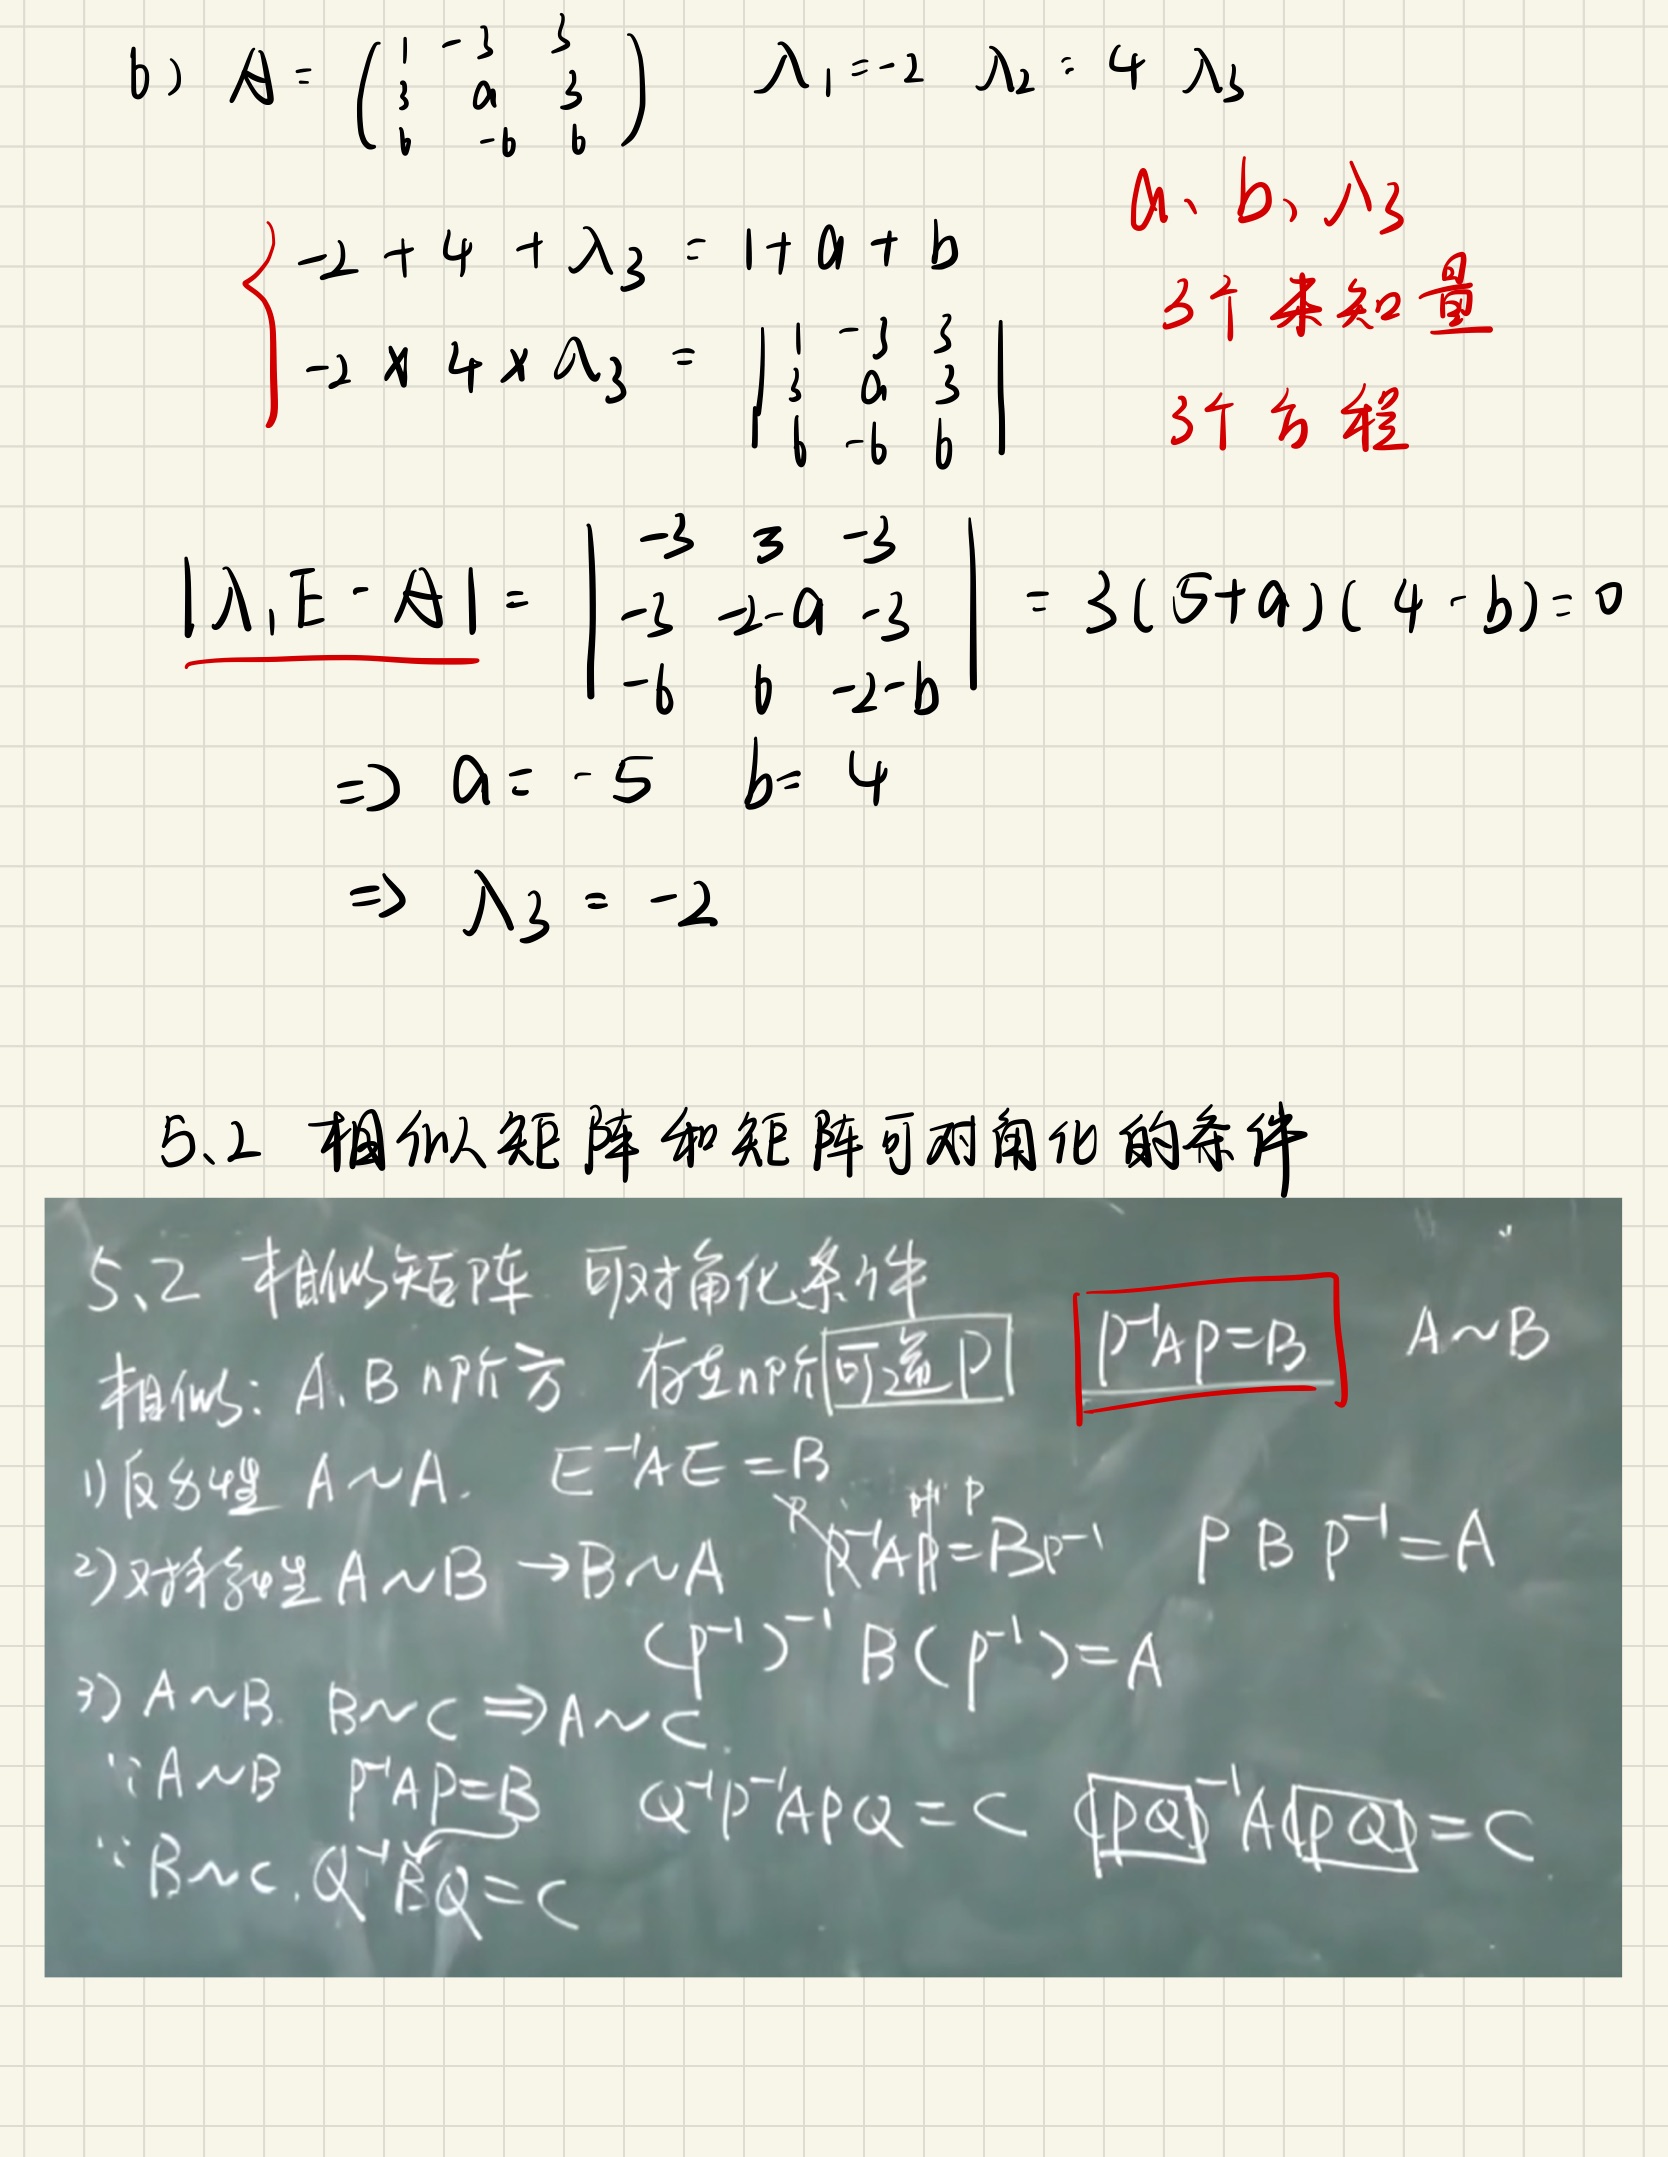 b) A = ( 1 -3 3
3 a 3
6 -6 b ) λ₁ = -2 λ₂ = 4 λ₃
a、b、λ₃
-2 + 4 + λ₃ = 1 + a + b
3个未知量
-2 × 4 × λ₃ = | 1 -3 3
3 a 3
6 -6 b |
3个方程
|λ₁E - A| = | -3 3 -3
-3 -2-a -3
-6 6 -2-b | = 3(5+a)(4-b) = 0
=> a = -5 b = 4
=> λ₃ = -2
5.2 相似矩阵和矩阵可对角化的条件
5.2 相似矩阵 可对角化条件
相似: A、B n阶方 存在n阶可逆P P⁻¹AP=B A~B
1) 反身性 A~A. E⁻¹AE=B
2) 对称性 A~B → B~A P P⁻¹AP P⁻¹ = BP⁻¹ PBP⁻¹=A
(P⁻¹)⁻¹B(P⁻¹)=A
3) A~B. B~C ⇒ A~C.
∵ A~B P⁻¹AP=B Q⁻¹P⁻¹APQ=C (PQ)⁻¹A(PQ)=C
∵ B~C. Q⁻¹BQ=C